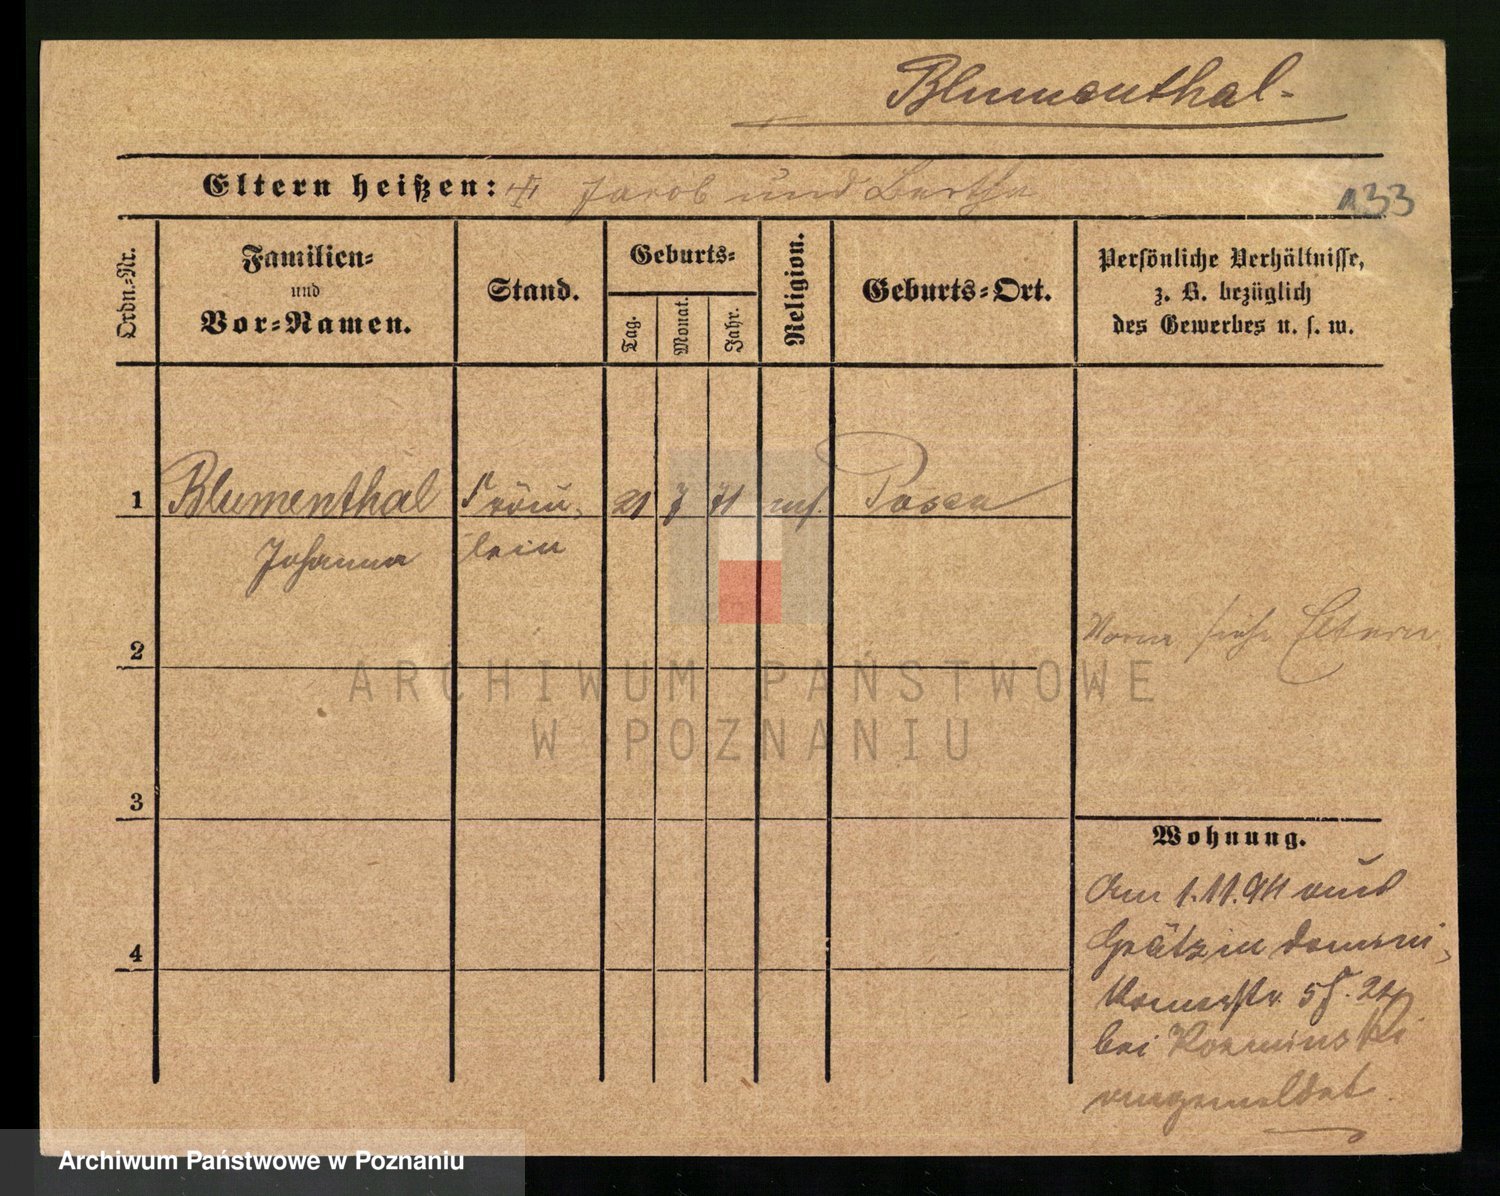 Blumenthal-
Eltern heißen: Jacob und Bertha
133
Ordn.-Nr.
Familien-
und
Vor-Namen.
Stand.
Geburts-
Tag.
Monat.
Jahr.
Religion.
Geburts-Ort.
Persönliche Verhältnisse,
z. B. bezüglich
des Gewerbes u. s. w.
1 Blumenthal Fräu- 21 7 71 mos. Posen
Johanna lein
2
siehe Eltern
3
4
Wohnung.
Am 1.11.94 aus
Grätz in Domini-
kanerstr. 5
bei Kozminski
angemeldet.
ARCHIWUM PAŃSTWOWE
W POZNANIU
Archiwum Państwowe w Poznaniu